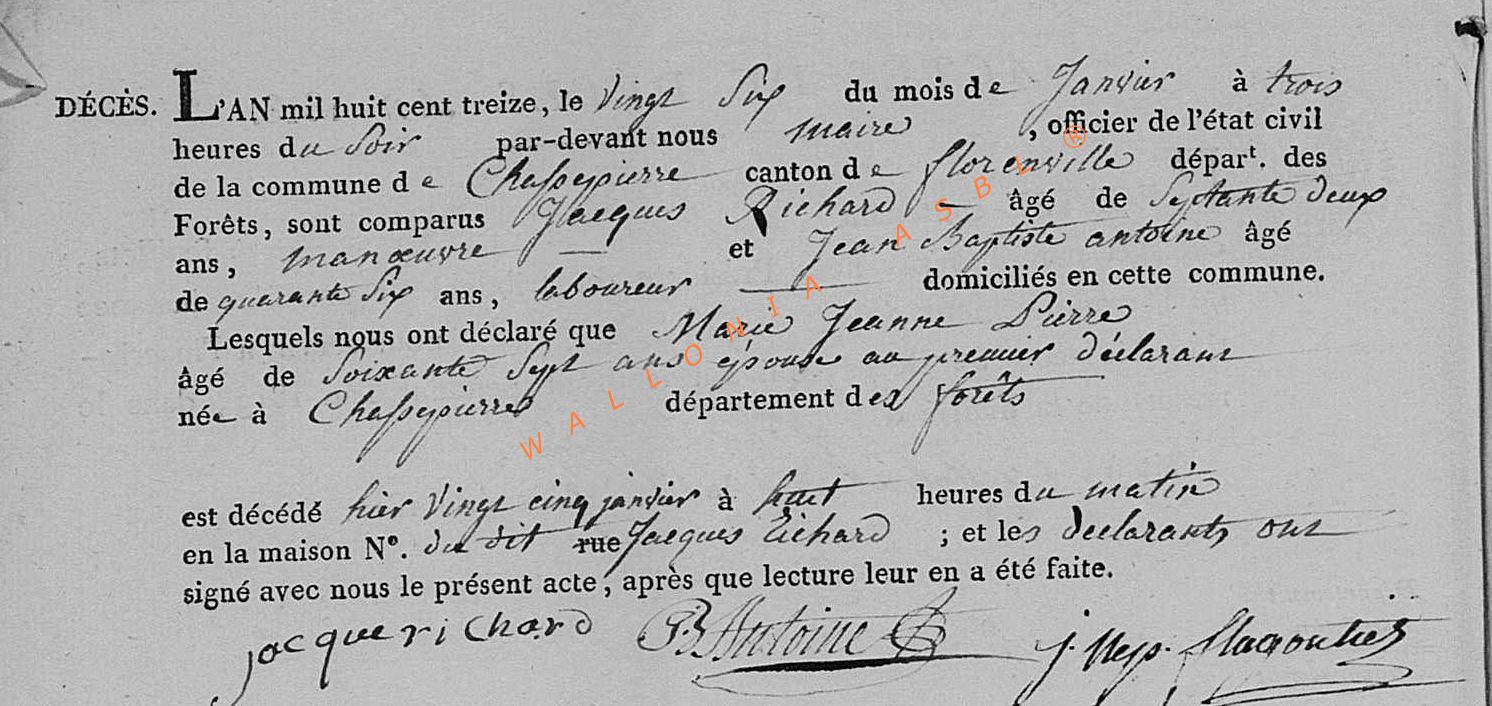 DÉCÈS. L'AN mil huit cent treize, le vingt Six du mois de Janvier à trois
heures du Soir par-devant nous maire, officier de l'état civil
de la commune de Chassepierre canton de florenville départ. des
Forêts, sont comparus Jacques Richard — âgé de Septante deux
ans, manœuvre — et Jean Baptiste antoine âgé
de quarante Six ans, laboureur — domiciliés en cette commune.
Lesquels nous ont déclaré que Marie Jeanne Pierre
âgé de Soixante Sept ans épouse au premier déclarant
née à Chassepierre département des forêts
est décédé hier vingt cinq janvier à huit heures du matin
en la maison N°. du dit rue Jacques Richard ; et les declarants ont
signé avec nous le présent acte, après que lecture leur en a été faite.
jacque richard Antoine
WALLONIA ASBL ®